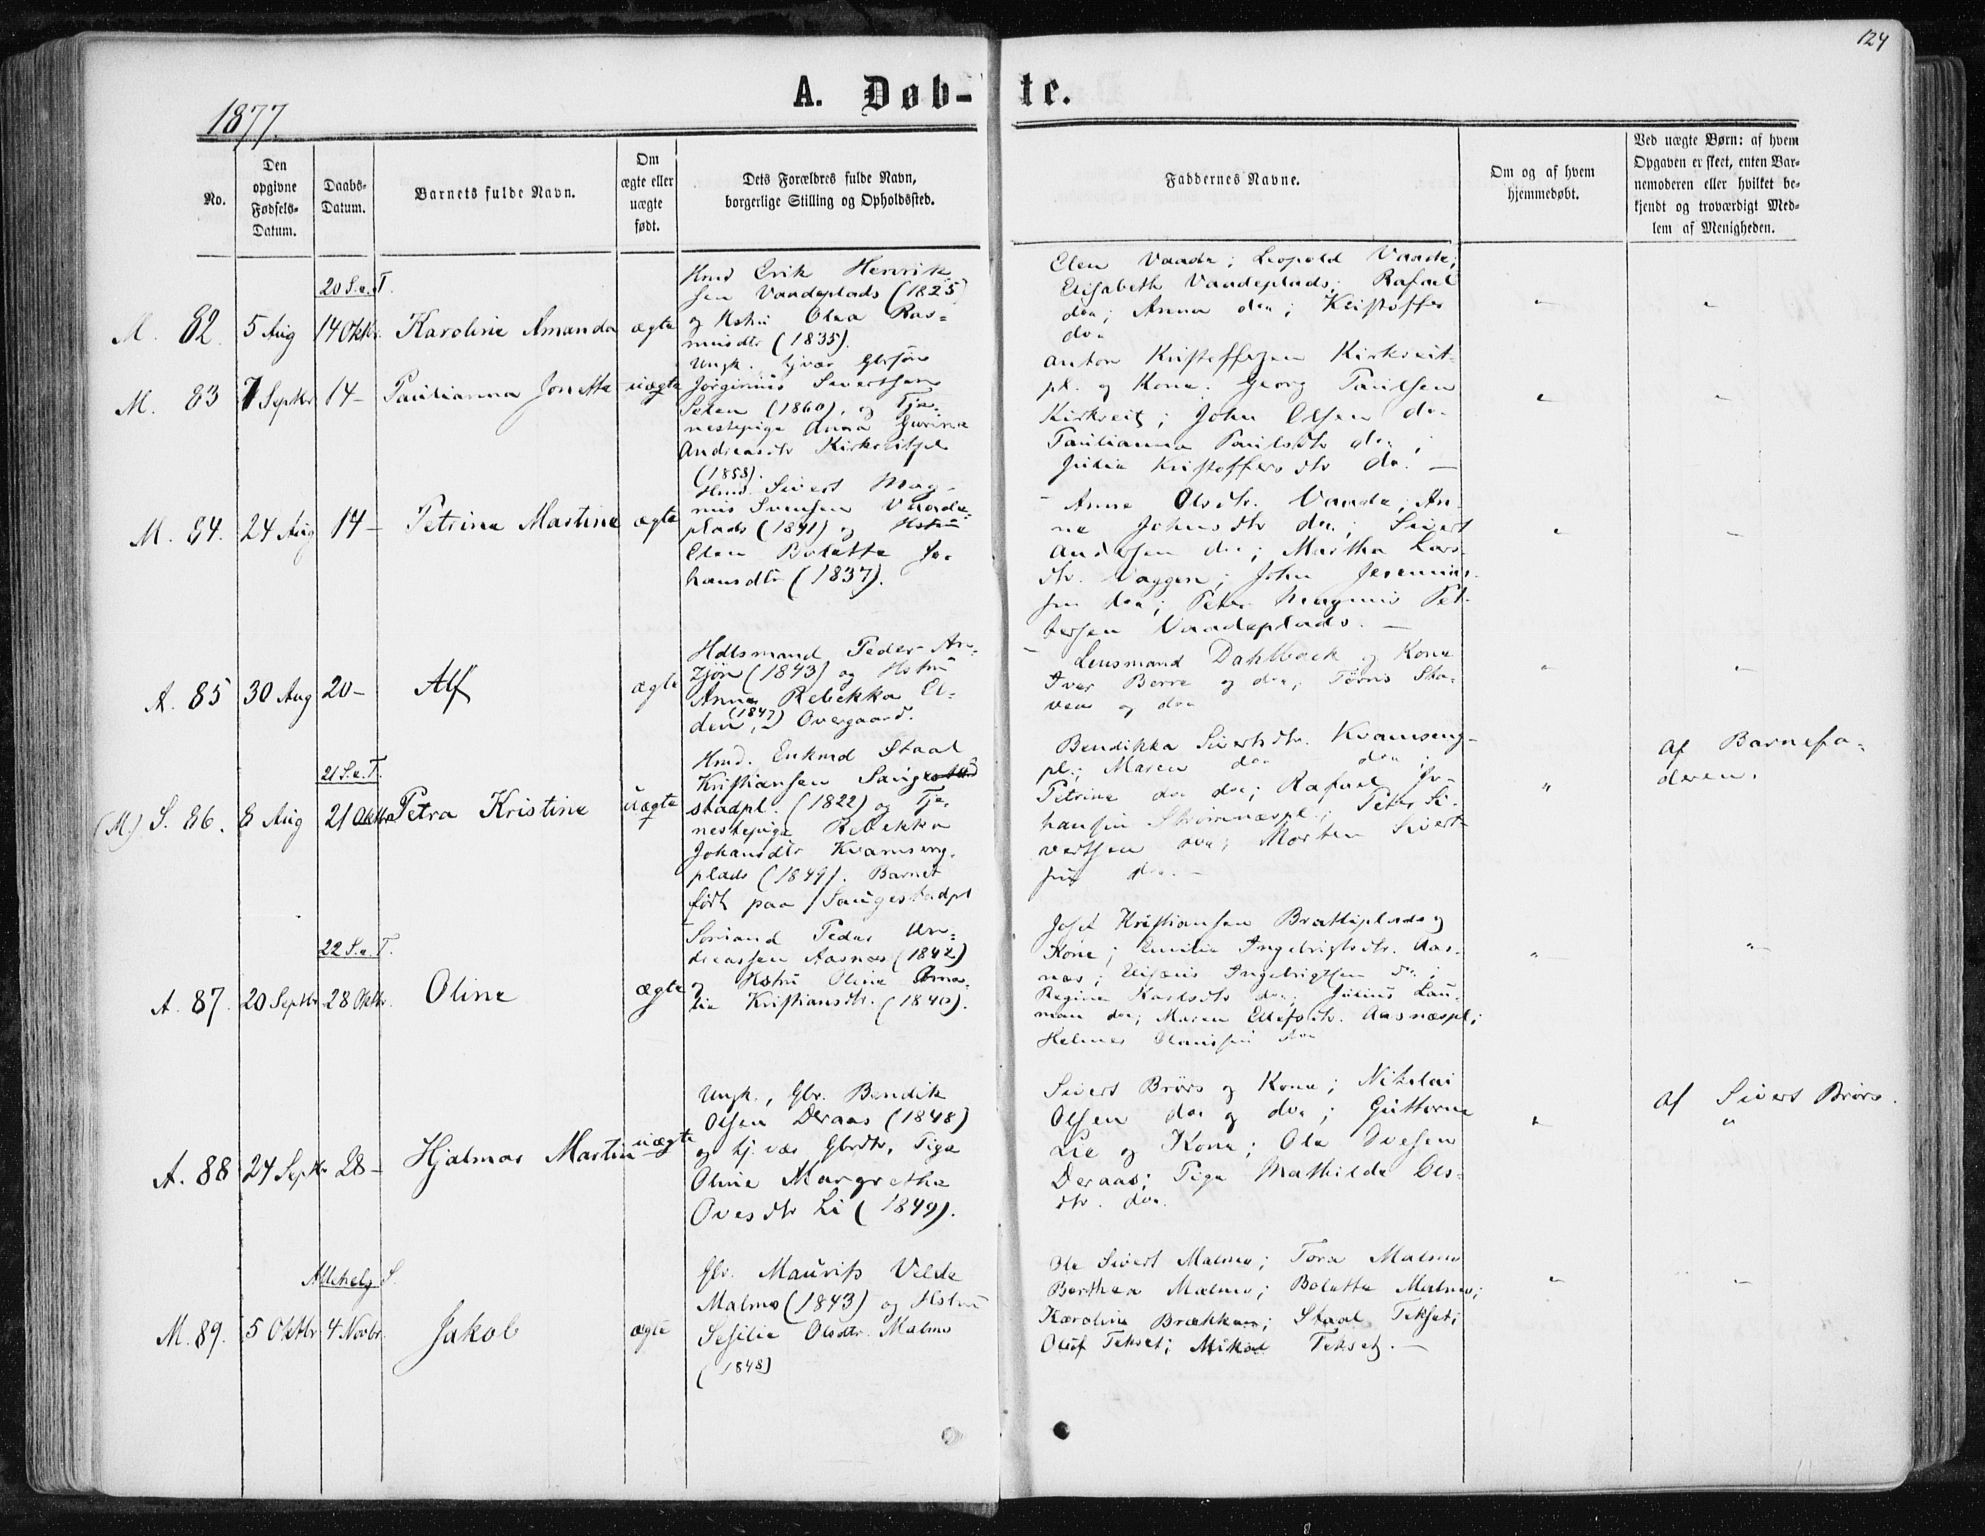 124
A. Døb- te.
1877.
No.
Den
opgivne
Fødsels-
Datum.
Daabs-
Datum.
Barnets fulde Navn.
Om
ægte eller
uægte
født.
Dets Forældres fulde Navn,
borgerlige Stilling og Opholdssted.
Faddernes Navne.
Om og af hvem
hjemmedøbt.
Ved uægte Børn: af hvem
Opgaven er skeet, enten Bar-
nemoderen eller hvilket be-
kjendt og troværdigt Med-
lem af Menigheden.
20 S.e.T.
M. 82. 5 Aug 14 Oktbr. Karoline Amanda ægte
Hmd Erik Henrik-
sen Vaadeplads (1825)
og Hstru Olea Ras-
musdtr (1835).
Elen Vaada; Leopold Vaada;
Elisabeth Vaadeplads; Rafael
do; Anna do; Kristoffer
do
" "
M. 83 7 Septbr 14 - Paulianna Jonetta uægte
Ungk. hjvær Gbrsøn
Jørginus Sivertsen
(1860), og Tje-
nestepige Anna Gurina
Andreasdtr Kirkreitpl
(1858).
Anton Kristoffersen Kirkreit-
pl. og Kone. Georg Paulsen
Kirkreit; John Olsen do
Paulianna Paulsdtr do;
Julia Kristoffersdtr do. -
" "
M. 84. 24 Aug 14 - Petrina Martine ægte
Hmd. Sivert Mag-
nus Svensen Vaade-
plads (1841) og Hstru
Elen Boletta Jo-
hansdtr (1837).
Anne Olsdtr. Vaada, An-
ne Johnsdtr do; Sivert
Andersen do; Martha Lars-
dtr. Vaggen; John Jeremias-
sen do; Peter Magnus Pet-
tersen Vaadeplads. -
" "
A. 85 30 Aug 20 - Alf ægte
Hdlsmand Peder An-
zjøn (1843) og Hstru
Anna Rebekka El-
den, (1847) Overgaard.
Lensmand Dahlback og Kone
Iver Berre og do; Tørris Sta-
ven og do
" "
21 S.e.T.
(M.) S. 86. 8 Aug 21 Oktbr Petra Kristine uægte
Hmd. Enkmd Staal
Kristiansen Sauge
stadpl. (1822) og Tje-
nestepige Rebekka
Johansdtr Kvamseng-
plads (1849). Barnet
født paa Saugestadpl
Bendikka Sivertsdtr. Kvamseng-
pl.; Maren do do;
Petrine do do; Rafael Jo-
hansen Skjørnæspl.; Peter Si-
vertsen do; Morten Sivert-
sen do. -
"
af Barnefa-
deren.
22 S.e.T.
A. 87. 20 Septbr 28 Oktbr. Oline ægte
Sømand Peder An-
dreassen Aasnæs (1842)
og Hstru Oline Ama-
lie Kristiansdtr. (1840).
Josef Kristiansen Brattiplads og
Kone; Emilie Ingebrigtsdtr. Aas-
næs; Elisæus Ingebrigtsen do;
Regina Karlsdtr do; Julius Lau-
man do; Maren Ellefsdtr. Aasnæspl;
Helmer Olaussen do
" "
A. 88 24 Septbr 28 - Hjalmar Martin uægte
Ungk., Gbr. Bendik
Olsen Deraas (1848)
og hj. vær Gbrdtr, Pige
Oline Margretha
Ovesdtr Li (1849).
Sivert Brørs og Kone; Nikolai
Olsen do og do; Guttorm
Lie og Kone; Ole Ovesen
Deraas; Pige Mathilde Ols-
dtr. do.
"
af Sivert Brørs.
"
Allehelg S.
M. 89. 5 Oktbr 4 Novbr. Jakob ægte
Gbr. Maurits Velde
Malmo (1843) og Hstru
Sesilie Olsdtr. Malmo
(1848)
Ole Sivert Malmo; Tora Malmo
Berthea Malmo; Boletta Malmo;
Karoline Brækken; Staal Tekset;
Oluf Tekset; Mikal Tekset. -
" "